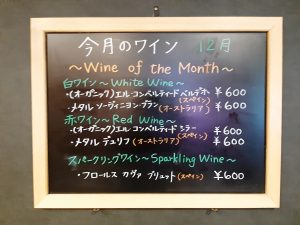 今月のワイン 12月
～Wine of the Month～
白ワイン～White Wine～
・(オーガニック)エル・コンベルティード ベルデホ (スペイン) ¥600
・メタル ソーヴィニヨン・ブラン (オーストラリア) ¥600
赤ワイン～Red Wine～
・(オーガニック)エル・コンベルティード シラー (スペイン) ¥600
・メタル デュリフ (オーストラリア) ¥600
スパークリングワイン～Sparkling Wine～
・フロールス カヴァ ブリュット (スペイン) ¥600